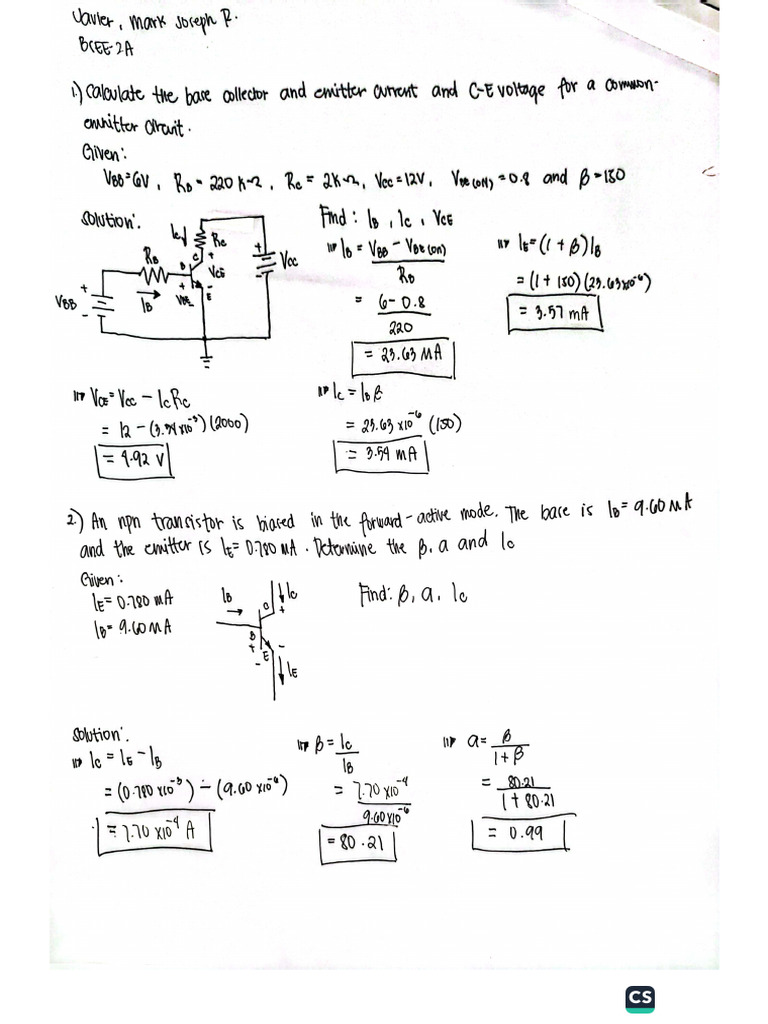 Javier, Mark Joseph R.
BSEE-2A
1.) Calculate the base collector and emitter current and C-E voltage for a common-
emitter circuit.
Given:
VBB=6V, RB = 220 K-Ω, RC = 2K-Ω, VCC=12V, VBE(ON) = 0.8 and β=150
Solution:
Find: IB, IC, VCE
IC
RC
C
+
VCE
RB
B
+
VBE
-
-
E
IB
+
VBB
-
+
VCC
-
IB = VBB - VBE(ON)
RB
= 6-0.8
220
= 23.63 MA
IE=(1+β)IB
= (1+150)(23.63x10^-6)
= 3.57 mA
VCE=VCC - ICRC
= 12 - (3.54x10^-3)(2000)
= 4.92 V
IC = IBβ
= 23.63 x10^-6 (150)
= 3.54 mA
2.) An npn transistor is biased in the forward-active mode. The base is IB=9.60MA
and the emitter is IE=0.780 MA. Determine the β, a and IC
Given:
IE=0.780 mA
IB=9.60MA
IB
IC
C
+
B
+
-
E
-
IE
Find: β, a, IC
Solution:
IC = IE - IB
= (0.780 x10^-3) - (9.60 x10^-6)
= 7.70 x10^-4 A
β = IC
IB
= 7.70 x10^-4
9.60x10^-6
= 80.21
a= β
1+β
= 80.21
1+80.21
= 0.99
CS